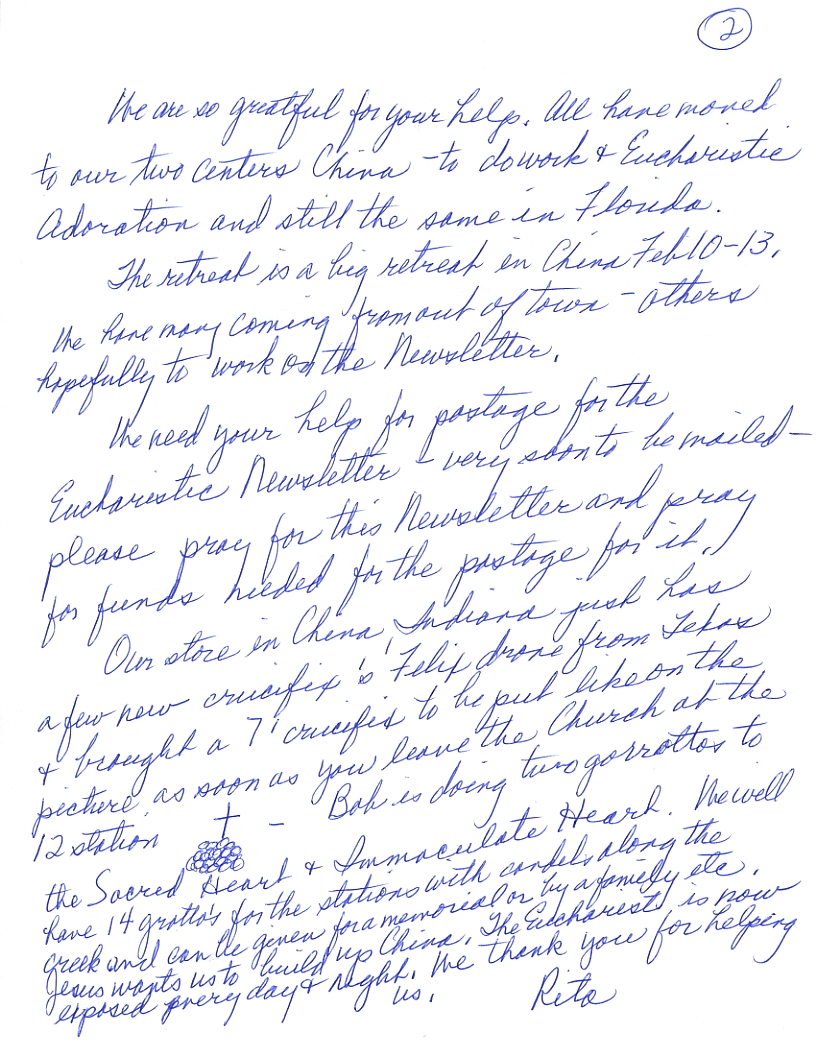 2
We are so greatful for your help. All have moved
to our two centers China - to do work & Eucharistic
Adoration and still the same in Florida.
The retreat is a big retreat in China Feb 10-13.
We have many coming from out of town - others
hopefully to work on the Newsletter.
We need your help for postage for the
Eucharistic Newsletter - very soon to be mailed -
please pray for this Newsletter and pray
for funds needed for the postage for it.
Our store in China, Indiana just has
a few new crucifix's Felix drove from Texas
& brought a 7' crucifix to be put like on the
picture, as soon as you leave the Church at the
12 station - Bob is doing two gorrottos to
the Sacred Heart & Immaculate Heart. We will
have 14 grotto's for the stations with candels along the
creek and can be given for a memorial or by a family etc.
Jesus wants us to build up China. The Eucharist is now
exposed every day & night. We thank you for helping
us. Rita